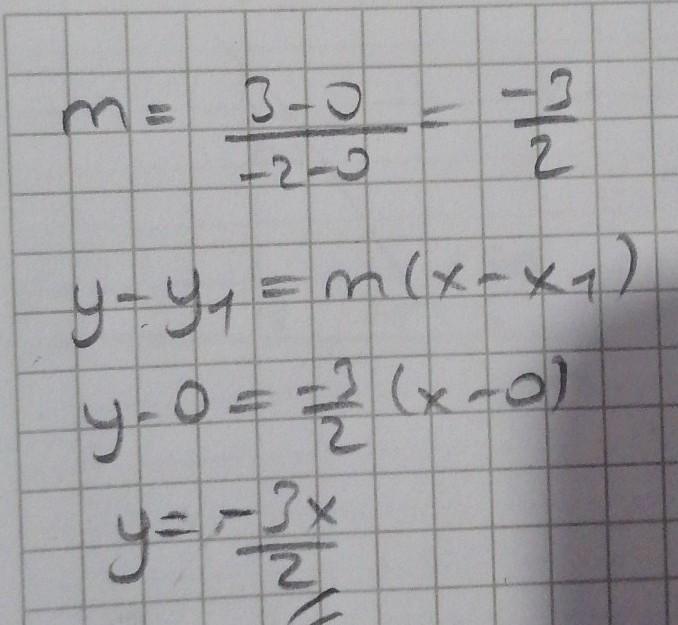 m = \frac{3-0}{-2-0} = \frac{-3}{2}
y - y_1 = m(x - x_1)
y - 0 = \frac{-3}{2}(x - 0)
y = \frac{-3x}{2}